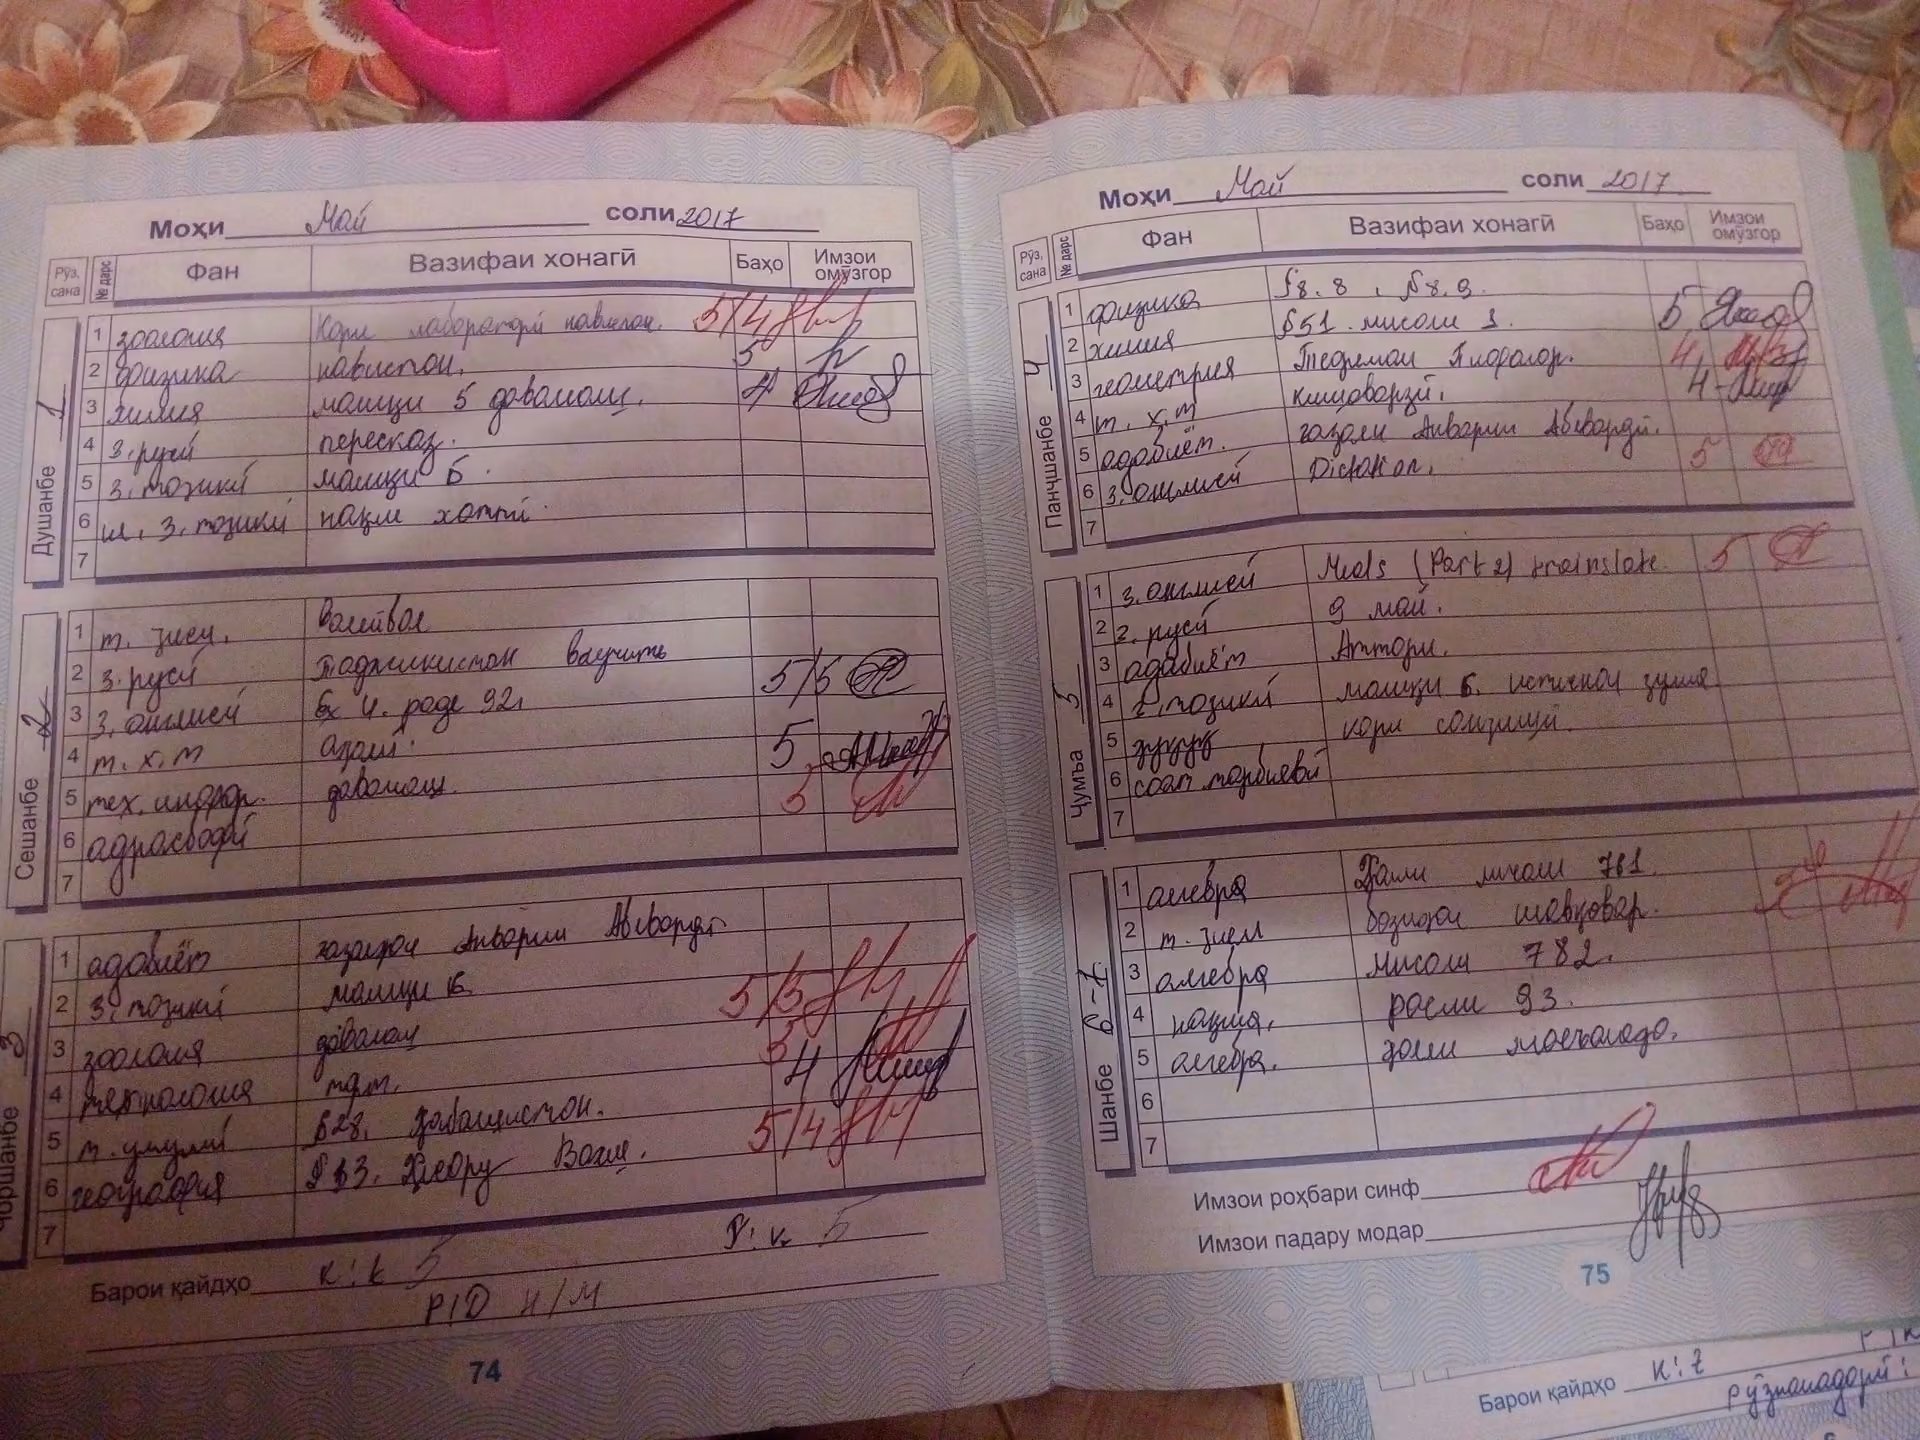 Моҳи Май соли 2017
Рӯз, сана № дарс Фан Вазифаи хонагӣ Баҳо Имзои омӯзгор
Душанбе 1
1 зоология Кори лаборатори навиштан. 5/4
2 физика навиштан. 5
3 химия машқи 5 давомаш. 4
4 з.русӣ пересказ.
5 з. тоҷикӣ машқи 5.
6 з. тоҷикӣ нақли хаттӣ.
7
Сешанбе 2
1 т. ҷисм. Волейбол
2 з. русӣ Таджикистан выучить
3 з. англисӣ Ex 4. page 92. 5/5
4 т. х. м 5
5 тех. информ. давомаш. 5
6 одробофӣ
7
Чоршанбе 3
1 адабиёт ғазалҳои Анварии Абевардӣ
2 з. тоҷикӣ машқи 6. 5/5
3 зоология давомаш 5
4 технология 4
5 т. умумӣ §28. Ҳабашистон. 5/4
6 география
7
Барои қайдҳо К:к 5 Р:к 5
Р/Д Н/М
74
Моҳи Май соли 2017
Рӯз, сана № дарс Фан Вазифаи хонагӣ Баҳо Имзои омӯзгор
Панҷшанбе 4
1 физика §8.8, §8.9.
2 химия §51. мисоли 1. 5
3 геометрия Теоремаи Пифагор. 4
4 т. х. м кишоварзӣ. 4
5 адабиёт. ғазали Анварии Абевардӣ.
6 з. англисӣ Dictation. 5
7
Ҷумъа 5
1 з. англисӣ Meals (Part 2) translate. 5
2 з. русӣ 9 май.
3 адабиёт Аттори.
4 з. тоҷикӣ машқи 6.
5 кори санҷишӣ.
6 соат тарбиявӣ
7
Шанбе 6-7
1 алгебра Ҳалли мисоли 781.
2 т. ҷисм бозиҳои шавқовар.
3 алгебра мисоли 782.
4 нақша. расми 93.
5 алгебра. ҳалли масъалаҳо.
6
7
Имзои роҳбари синф
Имзои падару модар
75
Барои қайдҳо К:7
рӯзномадорӣ: